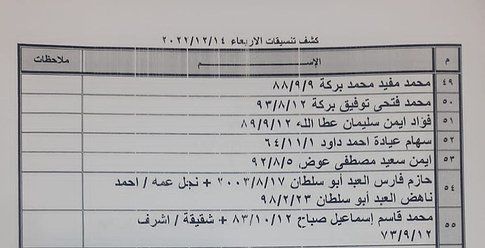 كشف تنسيقات الاربعاء ٢٠٢٢/١٢/١٤
م الإســـــــم ملاحظات
٤٩ محمد مفيد محمد بركة ٨٨/٩/٩
٥٠ محمد فتحى توفيق بركة ٩٣/٨/١٢
٥١ فؤاد ايمن سليمان عطا الله ٨٩/٩/١٢
٥٢ سهام عيادة احمد داود ٦٤/١١/١
٥٣ ايمن سعيد مصطفى عوض ٩٢/٨/٥
٥٤ حازم فارس العبد أبو سلطان ٢٠٠٣/٨/١٧ + نجل عمه / احمد
ناهض العبد أبو سلطان ٩٨/٢/٢٣
٥٥ محمد قاسم إسماعيل صباح ٨٣/١٠/١٢ + شقيقة / اشرف
٧٣/٩/١٢